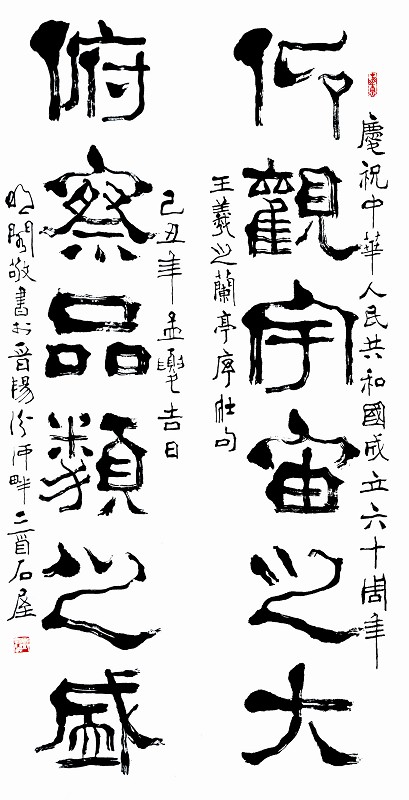 慶祝中華人民共和國成立六十周年
仰觀宇宙之大
王羲之蘭亭序佳句
己丑年孟吉日
俯察品類之盛
閣敬書於晉陽汾河畔二石屋